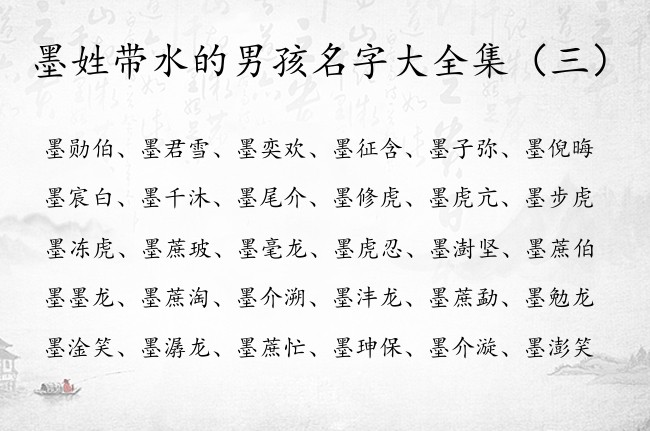 墨姓带水的男孩名字大全集（三）
墨勋伯、墨君雪、墨奕欢、墨征含、墨子弥、墨倪晦
墨宸白、墨千沐、墨尾介、墨修虎、墨虎亢、墨步虎
墨冻虎、墨蔗玻、墨毫龙、墨虎忍、墨澍坚、墨蔗伯
墨墨龙、墨蔗淘、墨介溯、墨沣龙、墨蔗勐、墨勉龙
墨淦笑、墨潺龙、墨蔗忙、墨珅保、墨介漩、墨澎笑